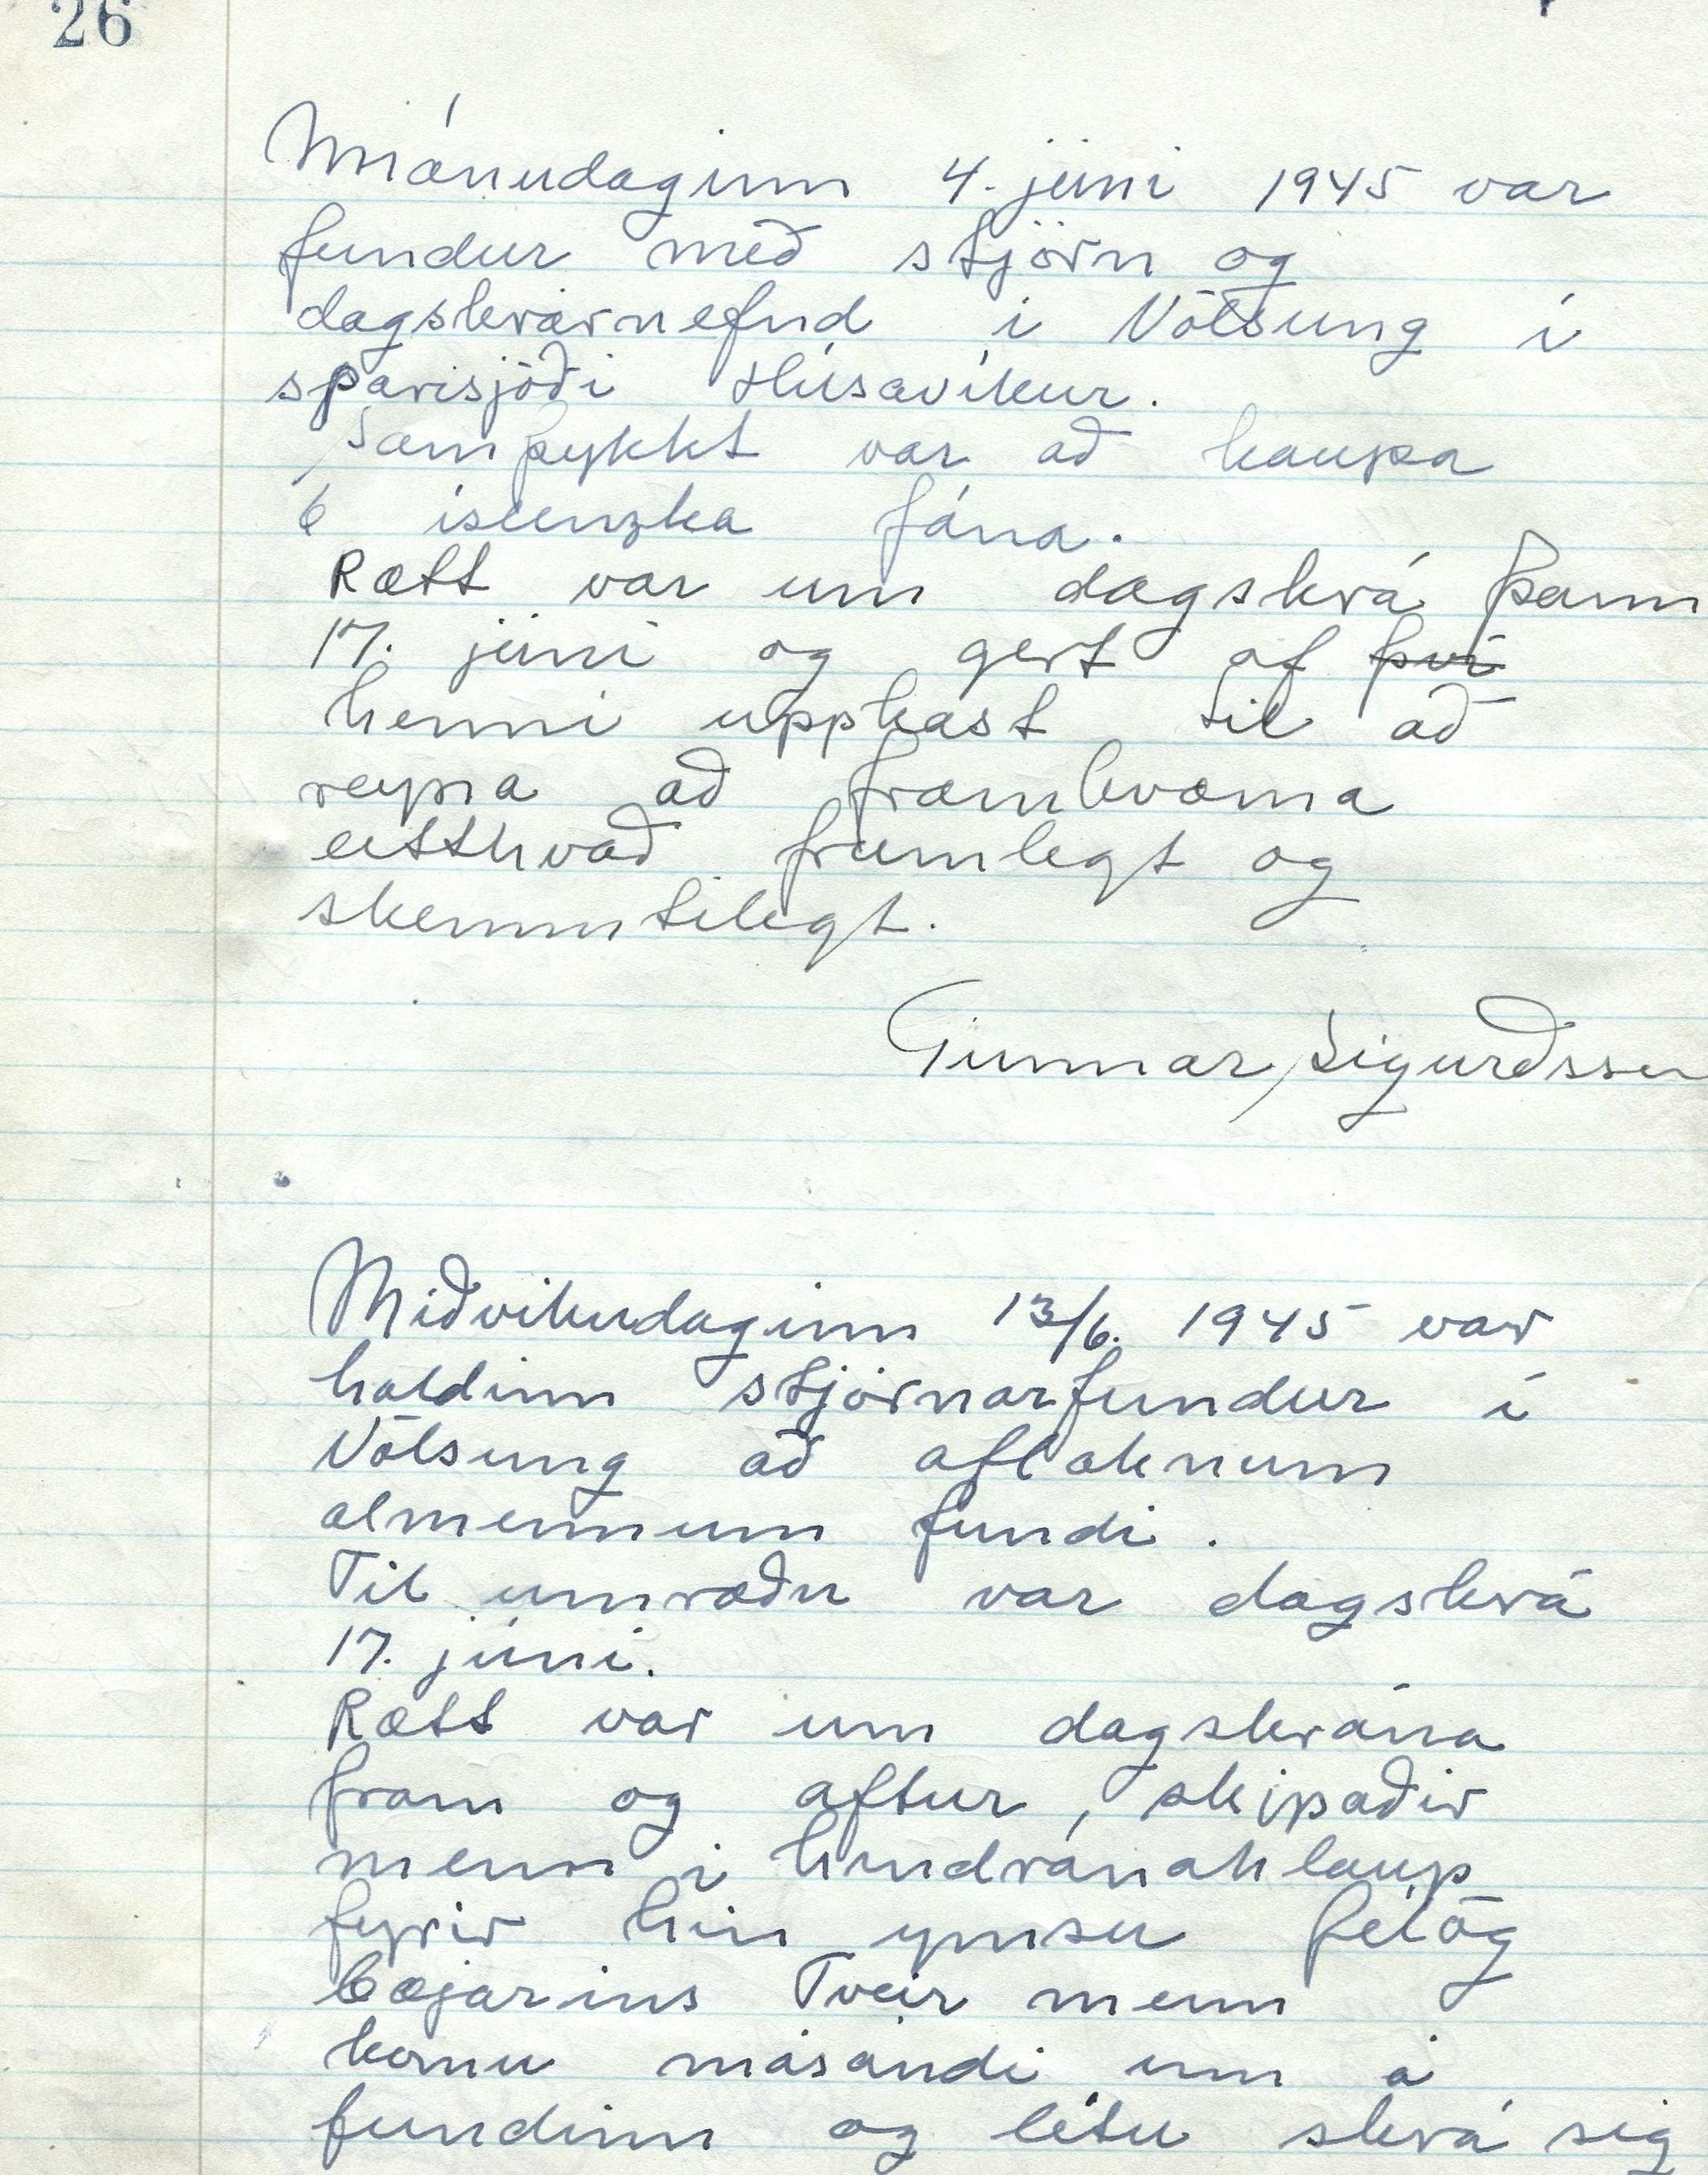 26
Mánudaginn 4. júní 1945 var
fundur með stjórn og
dagskrárnefnd í Völsung í
sparisjóði Húsavíkur.
Samþykkt var að kaupa
6 íslenzka fána.
Rætt var um dagskrá þann
17. júní og gert af því
henni uppkast til að
reyna að framkvæma
eitthvað frumlegt og
skemmtilegt.
Gunnar Sigurðsson
Miðvikudaginn 13/6. 1945 var
haldinn stjórnarfundur í
Völsung að afloknum
almennum fundi.
Til umræðu var dagskrá
17. júní.
Rætt var um dagskrána
fram og aftur, skipaðir
menn í hindranahlaup
fyrir hin ymsu félög
bæjarins Tveir menn
komu másandi inn á
fundinn og létu skrá sig